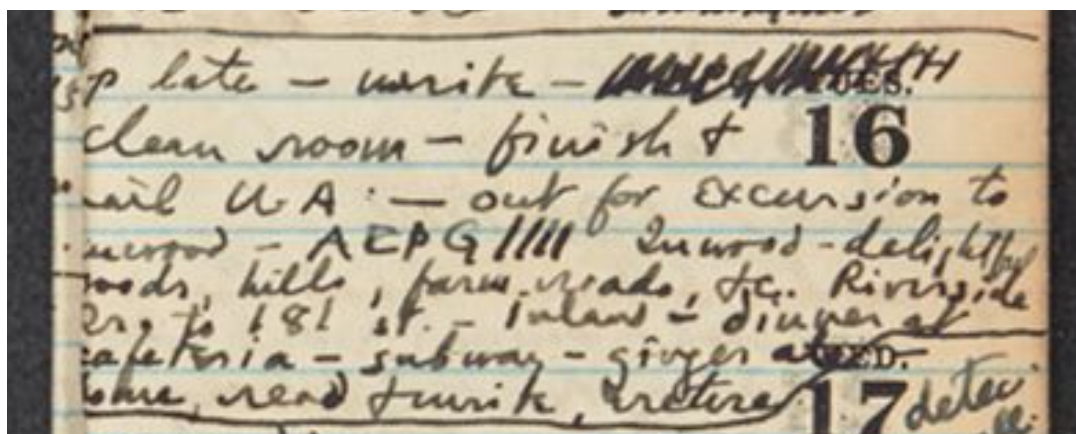 up late – write – TUES.
clean room – finish & 16
mail U A – out for excursion to
Inwood – AEPG //// Inwood – delightful
woods, hills, farm, roads, &c. Riverside
Dr. to 181 st. – inland – dinner at
cafeteria – subway – ginger ale WED.
home, read & write, retire 17